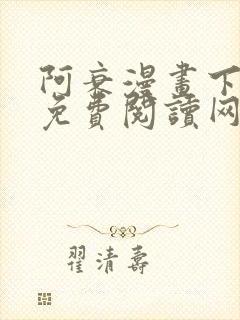 阿衰漫畫下
免費閱讀网
翟清壽